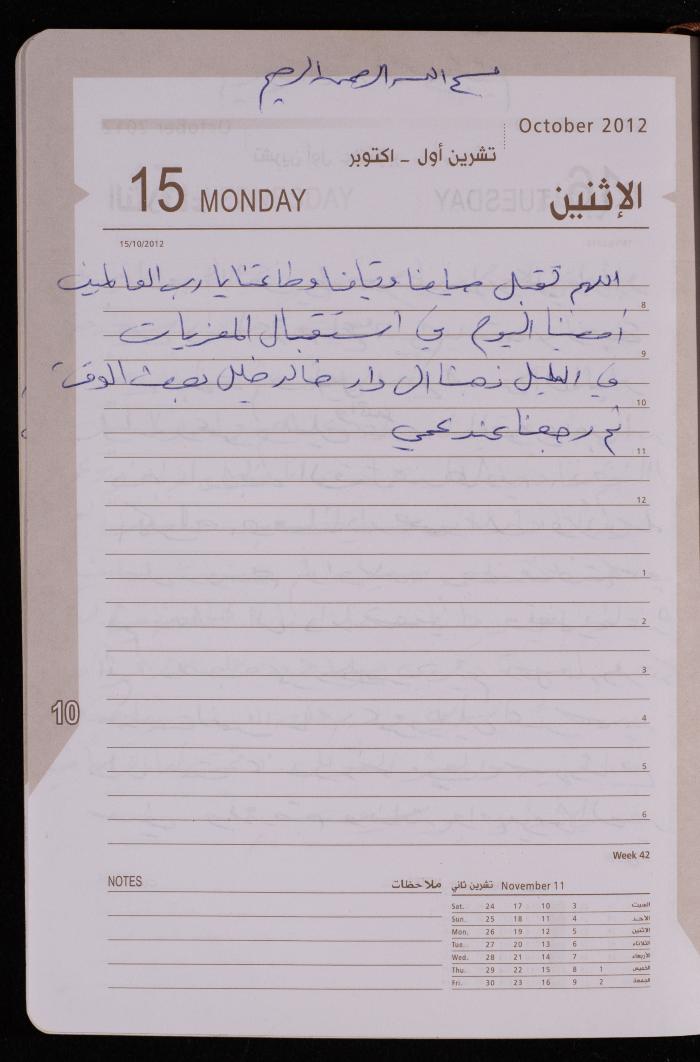 بسم الله الرحمن الرحيم
October 2012
تشرين أول - اكتوبر
15 MONDAY الإثنين
15/10/2012
اللهم تقبل صيامنا وقيامنا وطاعتنا يا رب العالمين
8
أمضينا اليوم في استقبال المعزيات
9
في الليل ذهبنا الى دار خالد خليل بعض الوقت
10
ثم رجعنا عند عمي
11
12
1
2
3
10
4
5
6
Week 42
NOTES ملاحظات
تشرين ثاني November 11
Sat. 24 17 10 3 السبت
Sun. 25 18 11 4 الأحد
Mon. 26 19 12 5 الاثنين
Tue. 27 20 13 6 الثلاثاء
Wed. 28 21 14 7 الأربعاء
Thu. 29 22 15 8 1 الخميس
Fri. 30 23 16 9 2 الجمعة